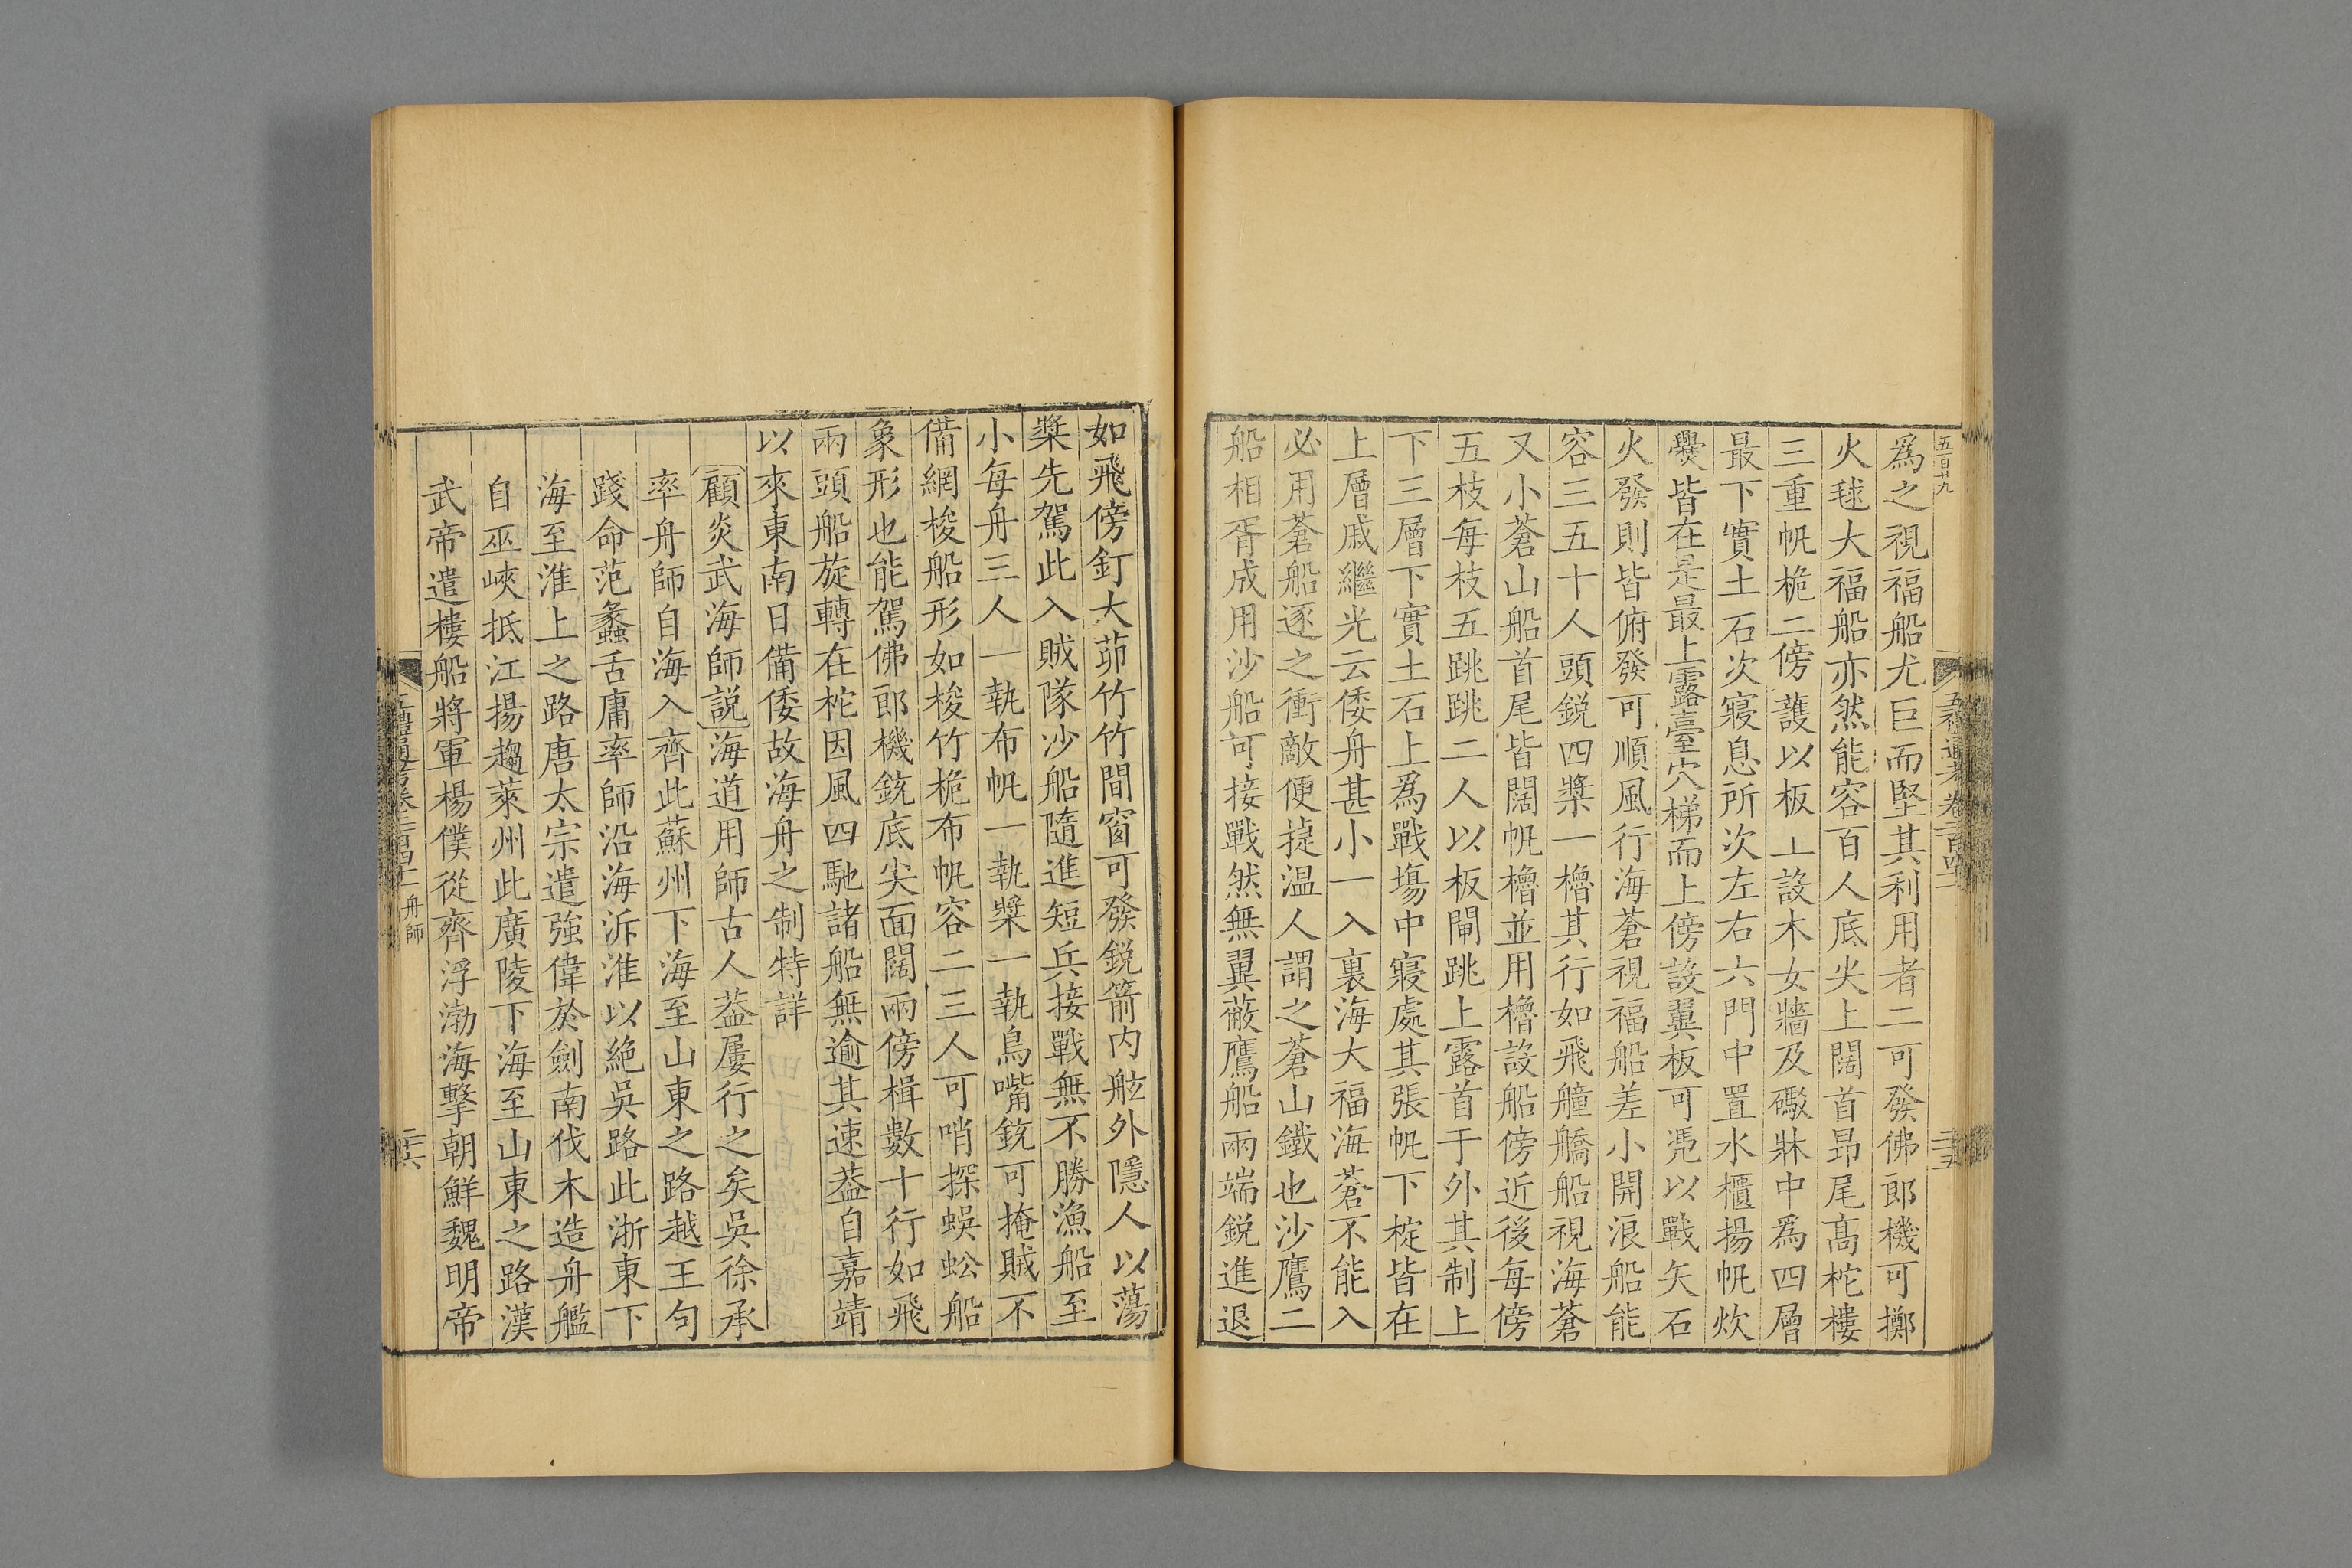 五百十九
五禮通考卷二百四十二
三五
爲之視福船尤巨而堅其利用者二可發佛郎機可擲
火毬大福船亦然能容百人底尖上闊首昂尾髙柁樓
三重帆桅二傍護以板上設木女牆及礮牀中爲四層
最下實土石次寢息所次左右六門中置水櫃揚帆炊
爨皆在是最上露臺穴梯而上傍設翼板可凴以戰矢石
火發則皆俯發可順風行海蒼視福船差小開浪船能
容三五十人頭銳四槳一櫓其行如飛艟艍船視海蒼
又小蒼山船首尾皆闊帆櫓並用櫓設船傍近後每傍
五枝每枝五跳跳二人以板閘跳上露首于外其制上
下三層下實土石上爲戰塲中寢處其張帆下椗皆在
上層戚繼光云倭舟甚小一入裏海大福海蒼不能入
必用蒼船逐之衝敵便捷温人謂之蒼山鐵也沙鷹二
船相胥成用沙船可接戰然無翼蔽鷹船兩端銳進退
如飛傍釘大茆竹竹間窗可發銳箭内舷外隱人以蕩
槳先駕此入賊隊沙船隨進短兵接戰無不勝漁船至
小每舟三人一執布帆一執槳一執鳥嘴銃可掩賊不
備網梭船形如梭竹桅布帆容二三人可哨探蜈蚣船
象形也能駕佛郎機銃底尖面闊兩傍楫數十行如飛
兩頭船旋轉在柁因風四馳諸船無逾其速葢自嘉靖
以來東南日備倭故海舟之制特詳
顧炎武海師説海道用師古人葢屢行之矣吳徐承
率舟師自海入齊此蘇州下海至山東之路越王句
踐命范蠡舌庸率師沿海泝淮以絶吳路此浙東下
海至淮上之路唐太宗遣強偉於劍南伐木造舟艦
自巫峽抵江揚趨萊州此廣陵下海至山東之路漢
武帝遣樓船將軍楊僕從齊浮渤海擊朝鮮魏明帝
五禮通考卷二百四十二 舟師
三六